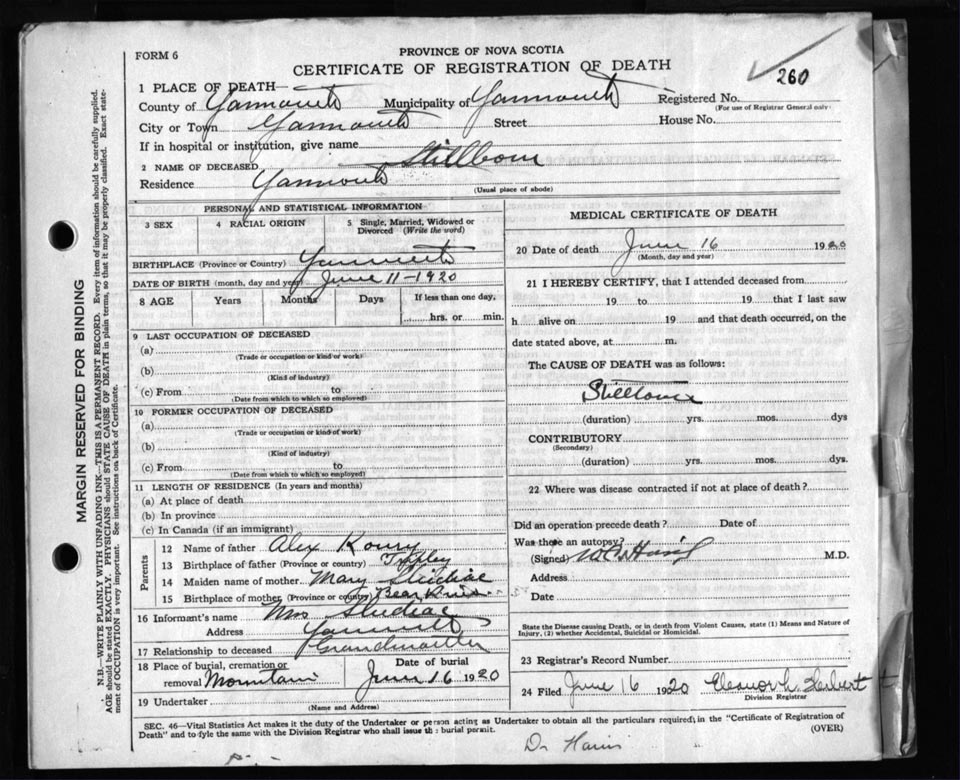 FORM 6
PROVINCE OF NOVA SCOTIA
CERTIFICATE OF REGISTRATION OF DEATH
260
1 PLACE OF DEATH—
County of Yarmouth Municipality of Yarmouth Registered No.
(For use of Registrar General only)
City or Town Yarmouth Street House No.
If in hospital or institution, give name
2 NAME OF DECEASED Stillborn
Residence Yarmouth
(Usual place of abode)
PERSONAL AND STATISTICAL INFORMATION
3 SEX 4 RACIAL ORIGIN 5 Single, Married, Widowed or Divorced (Write the word)
BIRTHPLACE (Province or Country) Yarmouth
DATE OF BIRTH (month, day and year) June 11-1920
8 AGE Years Months Days If less than one day,
hrs. or min.
9 LAST OCCUPATION OF DECEASED
(a)
(Trade or occupation or kind of work)
(b)
(Kind of industry)
(c) From to
(Date from which to which so employed)
10 FORMER OCCUPATION OF DECEASED
(a)
(Trade or occupation or kind of work)
(b)
(Kind of industry)
(c) From to
(Date from which to which so employed)
11 LENGTH OF RESIDENCE (In years and months)
(a) At place of death
(b) In province
(c) In Canada (if an immigrant)
Parents
12 Name of father Alex Koury
13 Birthplace of father (Province or country)
14 Maiden name of mother Mary
15 Birthplace of mother (Province or country) Bear River
16 Informant's name Mrs
Address Yarmouth
17 Relationship to deceased Grandmother
18 Place of burial, cremation or removal Mountain Date of burial June 16 1920
19 Undertaker
(Name and Address)
MEDICAL CERTIFICATE OF DEATH
20 Date of death June 16 1920
(Month, day and year)
21 I HEREBY CERTIFY, that I attended deceased from
19 to 19 that I last saw
h alive on 19 and that death occurred, on the
date stated above, at m.
The CAUSE OF DEATH was as follows:
Stillborn
(duration) yrs. mos. dys
CONTRIBUTORY
(Secondary)
(duration) yrs. mos. dys.
22 Where was disease contracted if not at place of death?
Did an operation precede death? Date of
Was there an autopsy?
(Signed) M.D.
Address
Date
State the Disease causing Death, or in death from Violent Causes, state (1) Means and Nature of
Injury, (2) whether Accidental, Suicidal or Homicidal.
23 Registrar's Record Number
24 Filed June 16 1920 Eleanor L. Herbert
Division Registrar
SEC. 46—Vital Statistics Act makes it the duty of the Undertaker or person acting as Undertaker to obtain all the particulars required in the "Certificate of Registration of
Death" and to file the same with the Division Registrar who shall issue the burial permit. (OVER)
Dr Harris
MARGIN RESERVED FOR BINDING
N.B.—WRITE PLAINLY WITH UNFADING INK—THIS IS A PERMANENT RECORD. Every item of information should be carefully supplied.
AGE should be stated EXACTLY. PHYSICIANS should STATE CAUSE OF DEATH in plain terms, so that it may be properly classified. Exact state-
ment of OCCUPATION is very important. See instructions on back of Certificate.